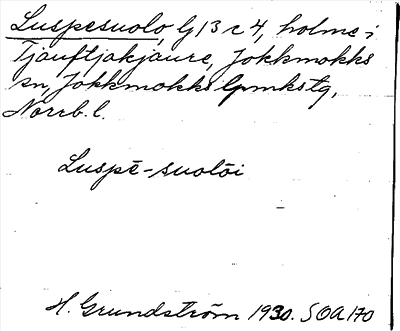 Luspesuolo, G 13 c 4, holme i
Tjauftjakjaure, Jokkmokks
sn, Jokkmokks lpmkstg,
Norrb. l.
Luspē-suolōi
H. Grundström 1930. SOA 170